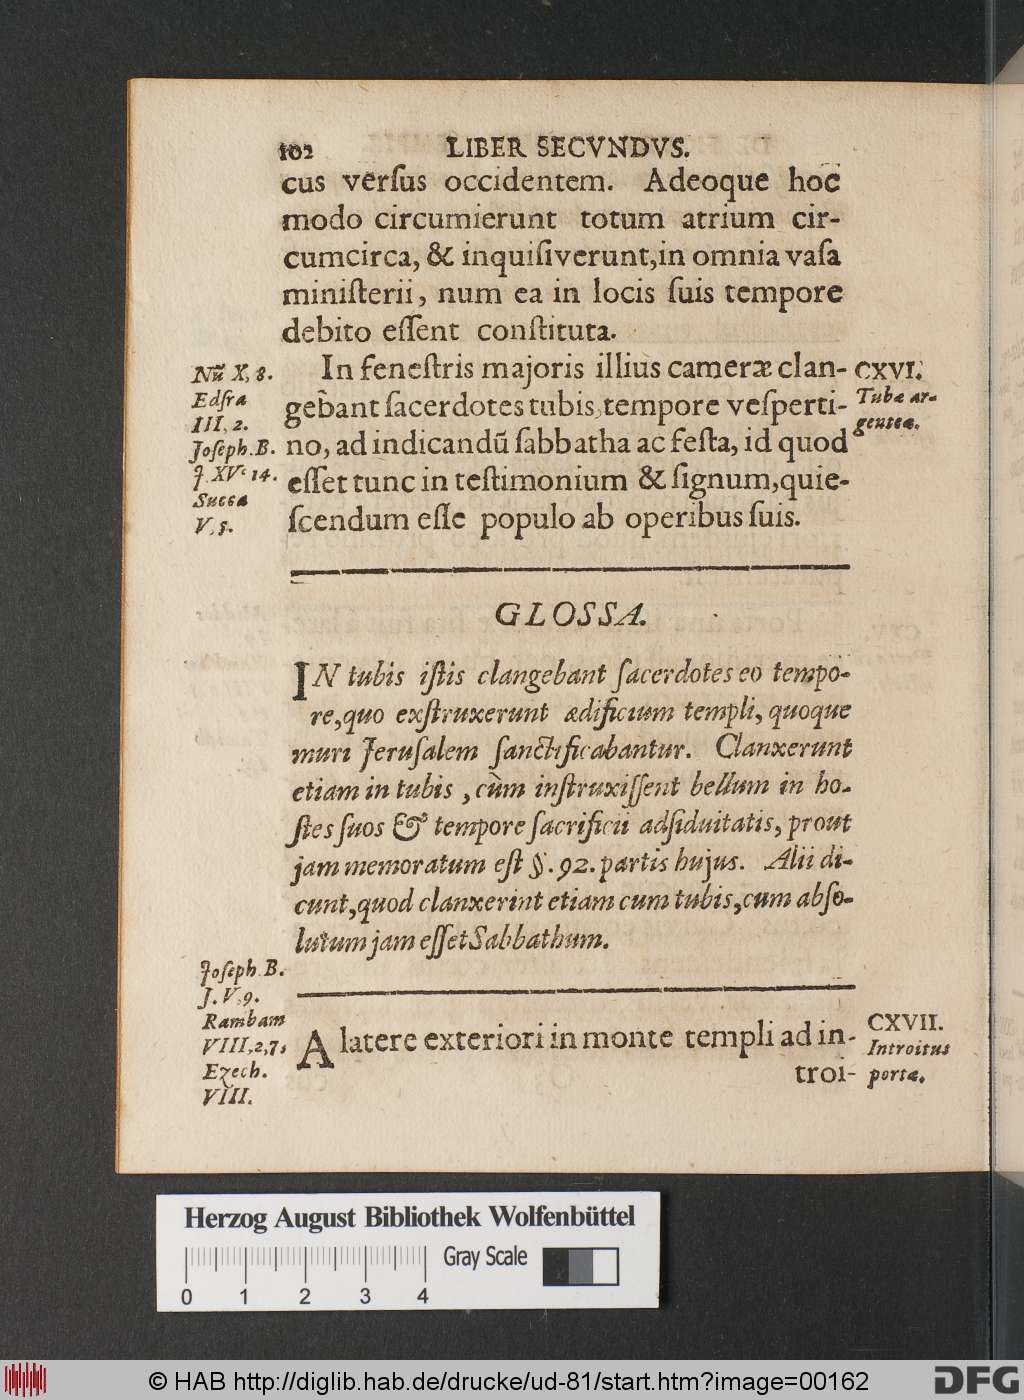 102 LIBER SECVNDVS.
cus versus occidentem. Adeoque hoc
modo circumierunt totum atrium cir-
cumcirca, & inquisiverunt, in omnia vasa
ministerii, num ea in locis suis tempore
debito essent constituta.
In fenestris majoris illius cameræ clan-
gebant sacerdotes tubis, tempore vesperti-
no, ad indicandũ sabbatha ac festa, id quod
esset tunc in testimonium & signum, quie-
scendum esse populo ab operibus suis.
Nũ X, 8.
Edsra
III, 2.
Joseph. B.
J. XV. 14.
Succa
V, 5.
CXVI.
Tubæ ar-
genteæ.
GLOSSA.
IN tubis istis clangebant sacerdotes eo tempo-
re, quo exstruxerunt ædificium templi, quoque
muri Jerusalem sanctificabantur. Clanxerunt
etiam in tubis, cùm instruxissent bellum in ho-
stes suos & tempore sacrificii adsiduitatis, prout
jam memoratum est §. 92. partis hujus. Alii di-
cunt, quod clanxerint etiam cum tubis, cum abso-
lutum jam esset Sabbathum.
Joseph. B.
J. V. 9.
Rambam
VIII, 2, 7,
Ezech.
VIII.
A latere exteriori in monte templi ad in-
troi-
CXVII.
Introitus
portæ.
Herzog August Bibliothek Wolfenbüttel
Gray Scale
0 1 2 3 4
© HAB http://diglib.hab.de/drucke/ud-81/start.htm?image=00162
DFG